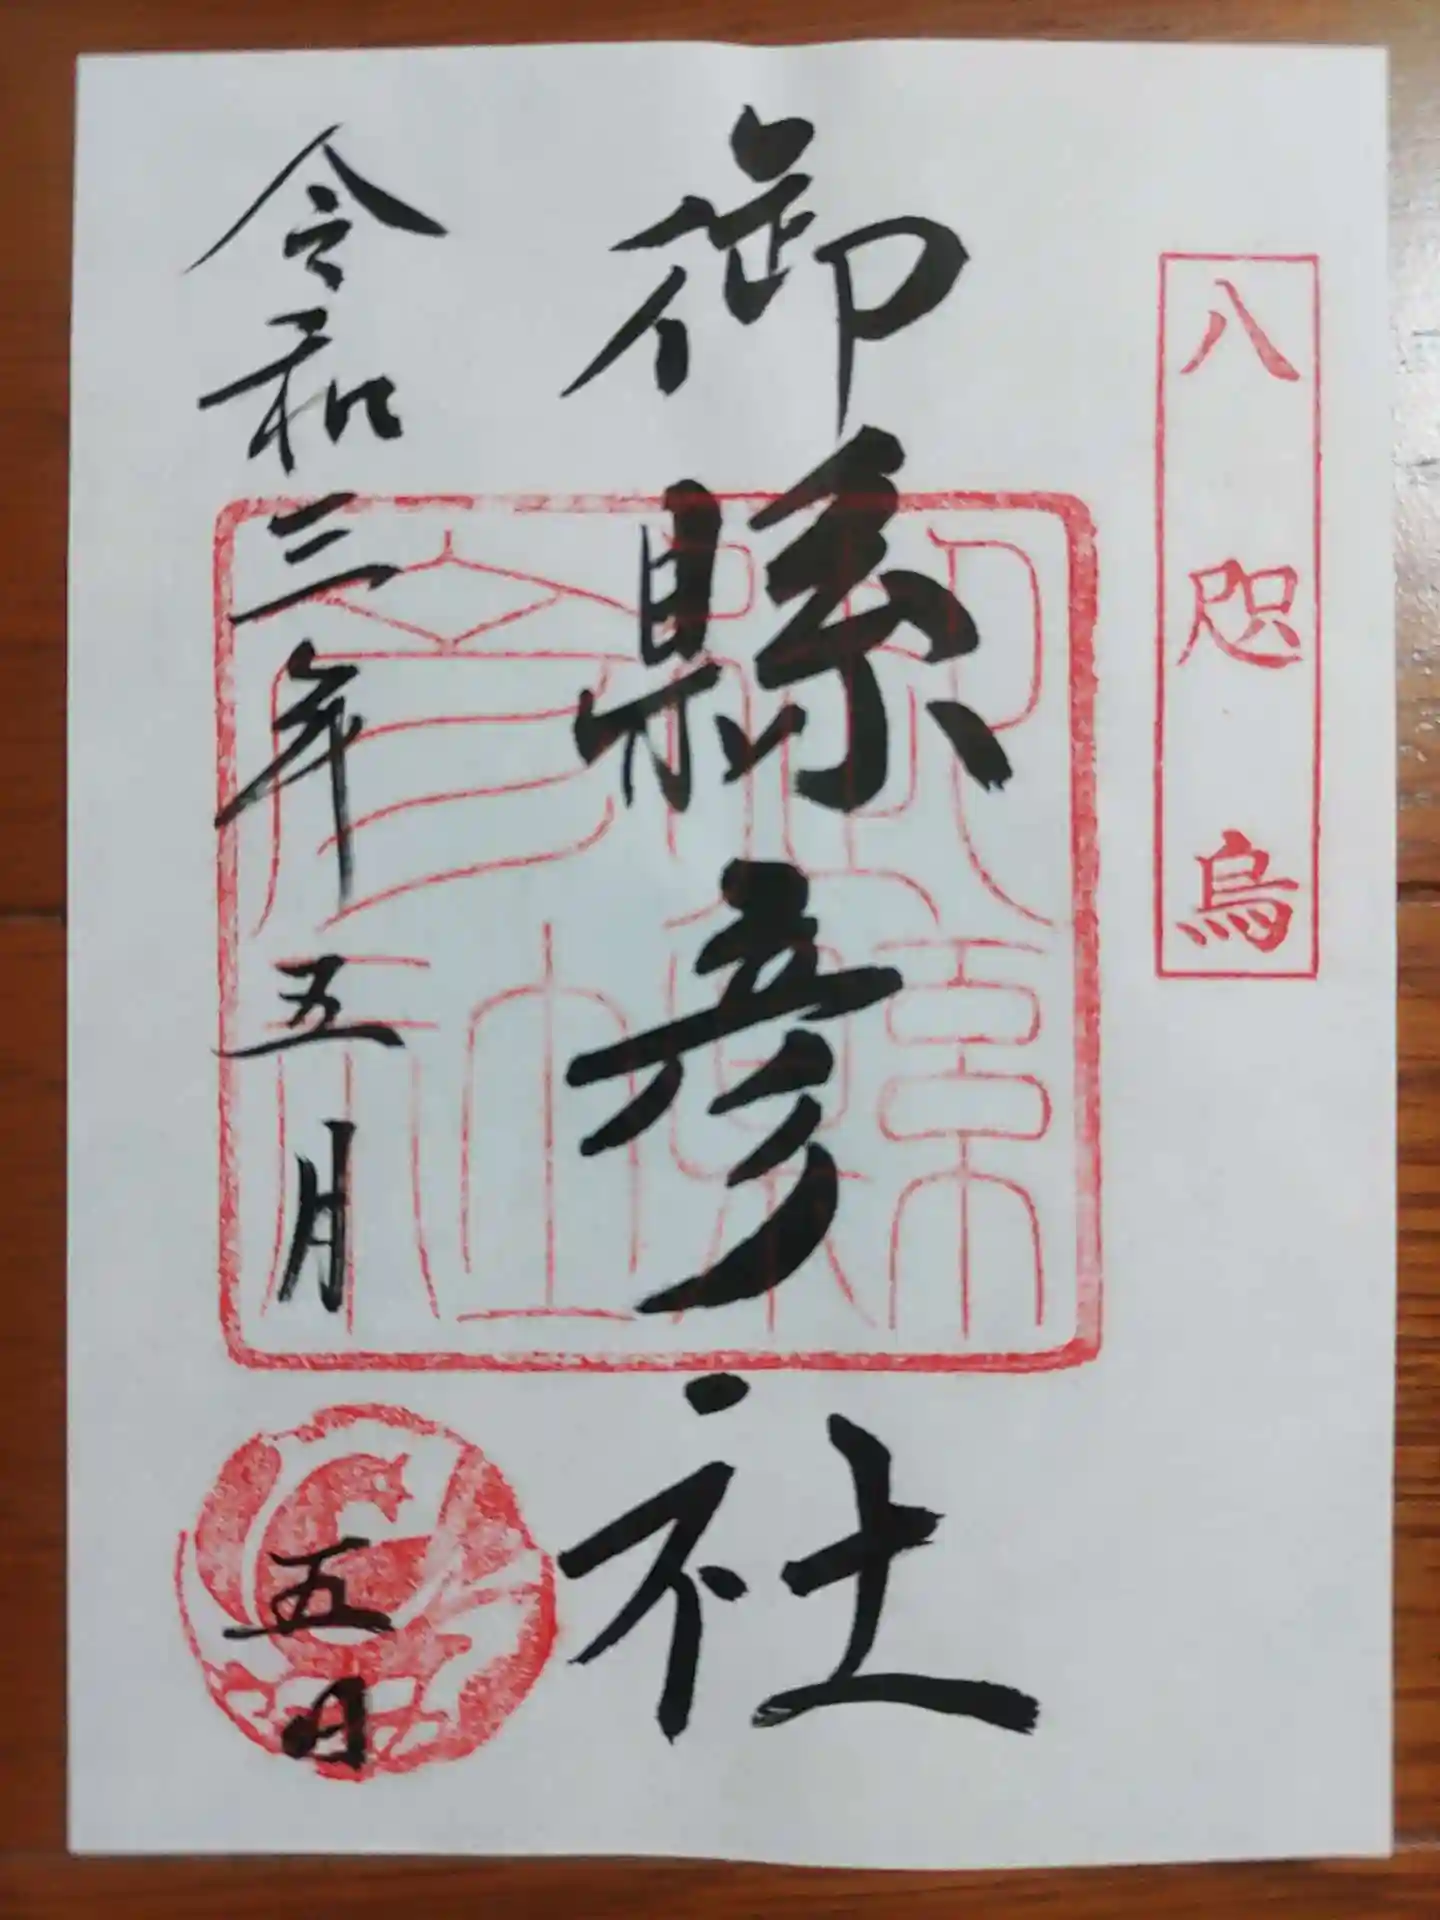 八咫烏
御縣彦社
令和三年五月五日